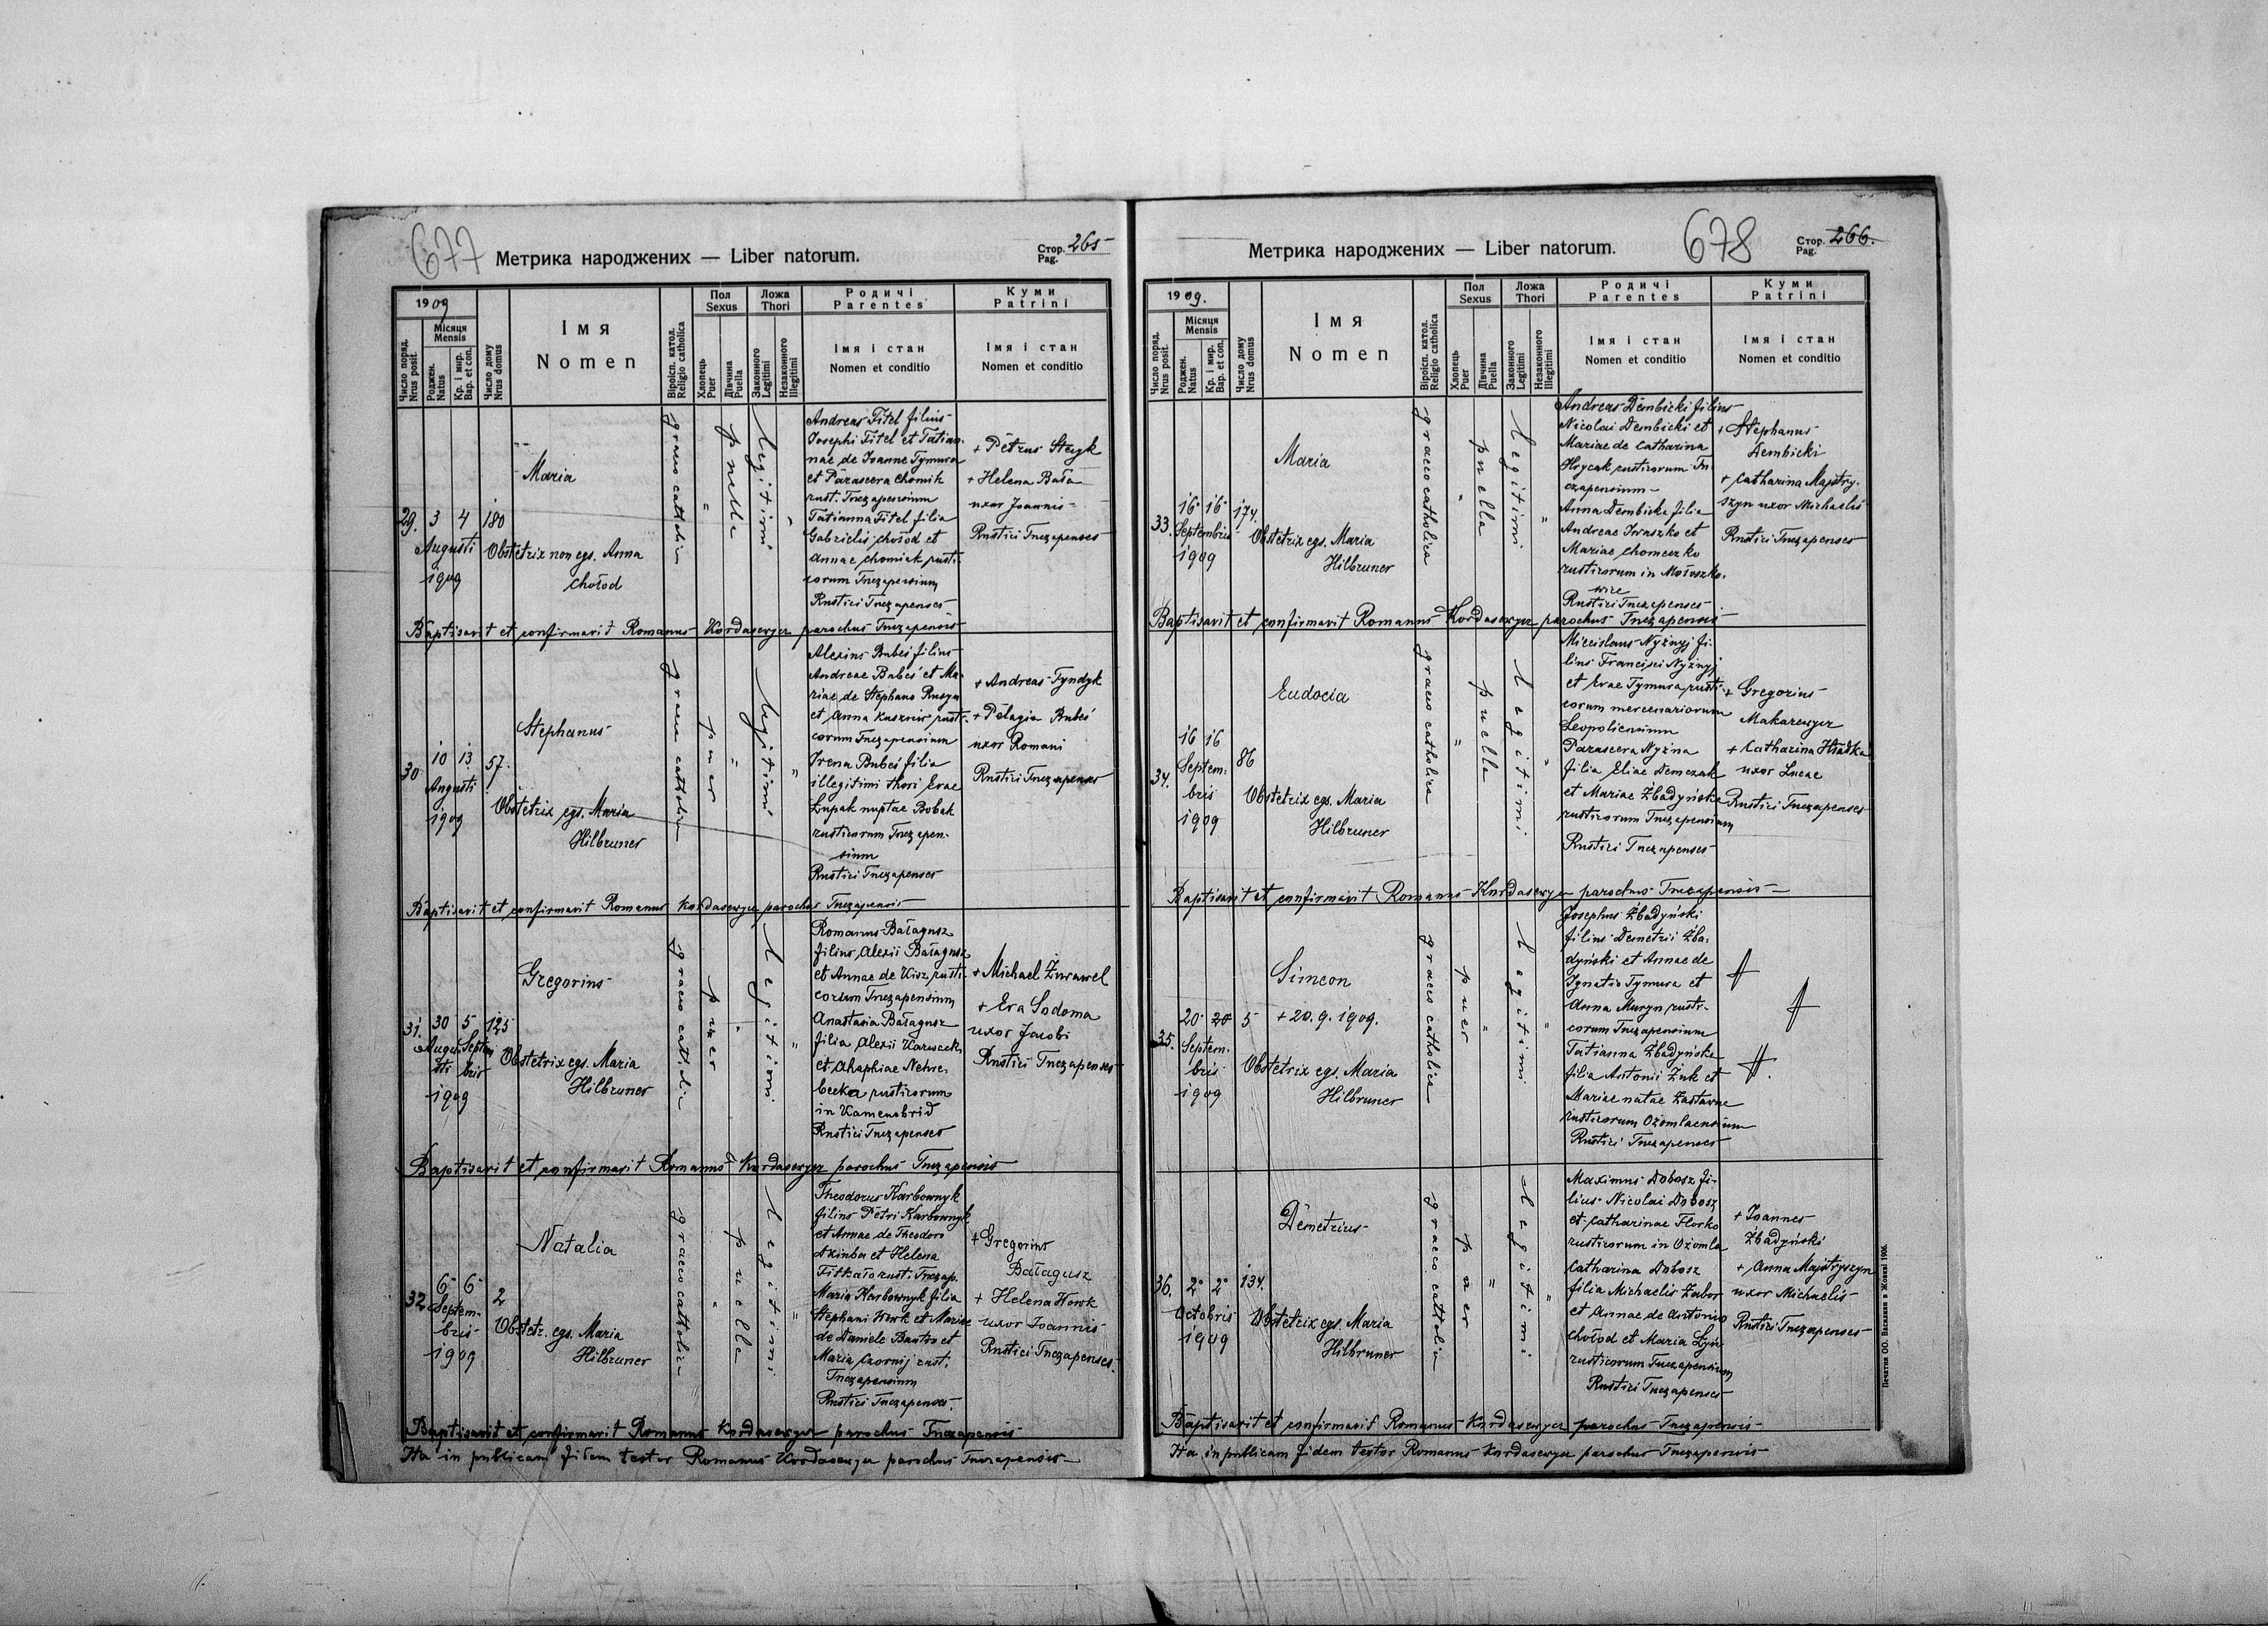 677
Метрика народжених — Liber natorum.
Стор. 265
Pag.
1909
Число поряд.
Nrus posit.
Місяця
Mensis
Роджен.
Natus
Кр. і мир.
Bap. et con.
Число дому
Nrus domus
Імя
Nomen
Віроісп. катол.
Religio catholica
Пол
Sexus
Хлопець
Puer
Дівчина
Puella
Ложа
Thori
Законного
Legitimi
Незаконного
Illegitimi
Родичі
Parentes
Імя і стан
Nomen et conditio
Куми
Patrini
Імя і стан
Nomen et conditio
29. 3 4 180
Augusti
1909
Maria
Obstetrix non egs. Anna
Chołod
graeco catholica
"
puella
legitimi
"
Andreas Fitel filius
Josephi Fitel et Tatian-
nae de Joanne Tymura
et Parascera Chomik
rust. Tuczapensium
Tatianna Fitel filia
Gabrielis Chołod et
Annae Chomiak rusti-
corum Tuczapensium
Rustici Tuczapenses
+ Petrus Steyk
+ Helena Bała
uxor Joannis
Rustici Tuczapenses
Baptisavit et confirmavit Romanus Kordasewycz parochus Tuczapensis
30 10 13 57.
Augusti
1909
Stephanus
Obstetrix egs. Maria
Hilbruner
graeco catholica
puer
"
legitimi
"
Alexius Bubeś filius
Andreae Bubeś et Ma-
riae de Stephano Rusyn
et Anna Kusznir rusti-
corum Tuczapensium
Irena Bubeś filia
illegitimi thori Evae
Łupak nuptae Bobak
rusticorum Tuczapen-
sium
Rustici Tuczapenses
+ Andreas Tyndyk
+ Pelagia Bubeś
uxor Romani
Rustici Tuczapenses
Baptisavit et confirmavit Romanus Kordasewycz parochus Tuczapensis
31. 30 5 125
Augu- Septem
sti bris
1909
Gregorius
Obstetrix egs. Maria
Hilbruner
graeco catholic
puer
"
legitimi
"
Romanus Bałagusz
filius Alexii Bałagusz
et Annae de Kisz rusti-
corum Tuczapensium
Anastasia Bałagusz
filia Alexii
et Ahaphiae Nehre-
becka rusticorum
in Kamenobrid
Rustici Tuczapenses
+ Michael Żurawel
+ Eva Sodoma
uxor Jacobi
Rustici Tuczapenses
Baptisavit et confirmavit Romanus Kordasewycz parochus Tuczapensis
32 6 6 2
Septem-
bris
1909
Natalia
Obstetr. egs. Maria
Hilbruner
graeco catholica
"
puella
legitimi
"
Theodorus Karbownyk
filius Petri Karbownyk
et Annae de Theodoro
Dziuba et Helena
Fitkało rusti. Tuczap.
Maria Karbownyk filia
Stephani Howk et Mariae
de Daniele Bantro et
Maria Czornij rust.
Tuczapensium
Rustici Tuczapenses.
+ Gregorius
Bałagusz
+ Helena Howk
uxor Joannis
Rustici Tuczapenses.
Baptisavit et confirmavit Romanus Kordasewycz parochus Tuczapensis
Ita in publicam fidem testor Romanus Kordasewycz parochus Tuczapensis
678
Метрика народжених — Liber natorum.
Стор. 266.
Pag.
1909.
Число поряд.
Nrus posit.
Місяця
Mensis
Роджен.
Natus
Кр. і мир.
Bap. et con.
Число дому
Nrus domus
Імя
Nomen
Віроісп. катол.
Religio catholica
Пол
Sexus
Хлопець
Puer
Дівчина
Puella
Ложа
Thori
Законного
Legitimi
Незаконного
Illegitimi
Родичі
Parentes
Імя і стан
Nomen et conditio
Куми
Patrini
Імя і стан
Nomen et conditio
33. 16 16 174.
Septembris
1909
Maria
Obstetrix egs. Maria
Hilbruner
graeco catholica
"
puella
legitimi
"
Andreas Dembicki filius
Nicolai Dembicki et
Mariae de Catharina
Hrycak rusticorum Tu-
czapensium
Anna Dembicka filia
Andreae Iwaszko et
Mariae Chomeczko
rusticorum in Mołoszko-
wice
Rustici Tuczapenses
+ Stephanus
Dembicki
+ Catharina Majstry-
szyn uxor Michaelis
Rustici Tuczapenses
Baptisavit et confirmavit Romanus Kordasewycz parochus Tuczapensis
34. 16 16 86
Septem-
bris
1909
Eudocia
Obstetrix egs. Maria
Hilbruner
graeco catholica
"
puella
legitimi
"
Miecislaus Nyżnyj fi-
lius Francisci Nyżnyj
et Evae Tymura rusti-
corum mercenariorum
Leopoliensium
Parascera Nyżna
filia Eliae Demczak
et Mariae Żbadyńska
rusticorum Tuczapensium
Rustici Tuczapenses
+ Gregorius
Makarewycz
+ Catharina Hładka
uxor Lucae
Rustici Tuczapenses
Baptisavit et confirmavit Romanus Kordasewycz parochus Tuczapensis
35. 20 20 5
Septem-
bris
1909
Simeon
+ 20. 9. 1909.
Obstetrix egs. Maria
Hilbruner
graeco catholica
puer
"
legitimi
"
Josephus Żbadyński
filius Demetrii Żba-
dyński et Annae de
Ignatio Tymura et
Anna Muryn rusti-
corum Tuczapensium
Tatianna Żbadyńska
filia Antonii Żuk et
Mariae natae Zastawne
rusticorum Ożomlaensium
Rustici Tuczapenses
36. 2 2 134.
Octobris
1909
Demetrius
Obstetrix egs. Maria
Hilbruner
graeco catholica
puer
"
legitimi
"
Maximus Dobosz fi-
lius Nicolai Dobosz
et Catharinae Florko
rusticorum in Ożomla
Catharina Dobosz
filia Michaelis Zabor
et Annae de Antonio
Chołod et Maria Łyń
rusticorum Tuczapensium
Rustici Tuczapenses
+ Joannes
Żbadyński
+ Anna Majstryszyn
uxor Michaelis
Rustici Tuczapenses
Baptisavit et confirmavit Romanus Kordasewycz parochus Tuczapensis
Ita in publicam fidem testor Romanus Kordasewycz parochus Tuczapensis
Печатня ОО. Василиян в Жовкві 1906.